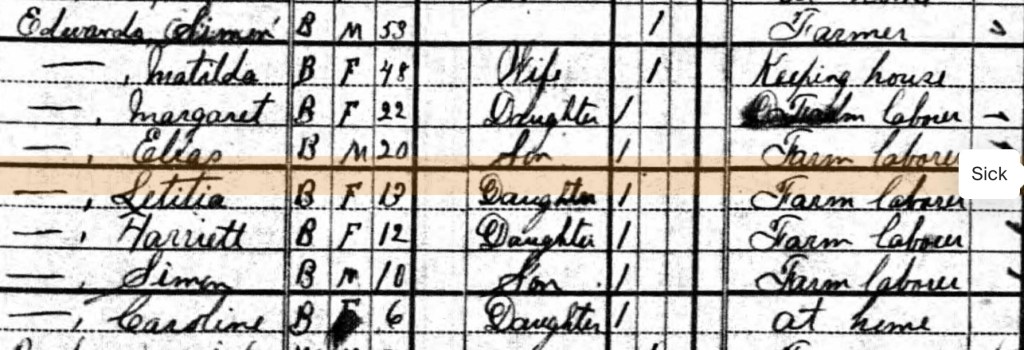 Edwards, Simon B M 53 1 Farmer
— , Matilda B F 48 Wife 1 Keeping house
— , Margaret B F 22 Daughter 1 laborer
— , Elias B M 20 Son 1 Farm laborer
Sick
— , Letitia B F 13 Daughter 1 Farm laborer
— , Harriett B F 12 Daughter 1 Farm laborer
— , Simon B M 10 Son 1 Farm laborer
— , Caroline B F 6 Daughter 1 at home